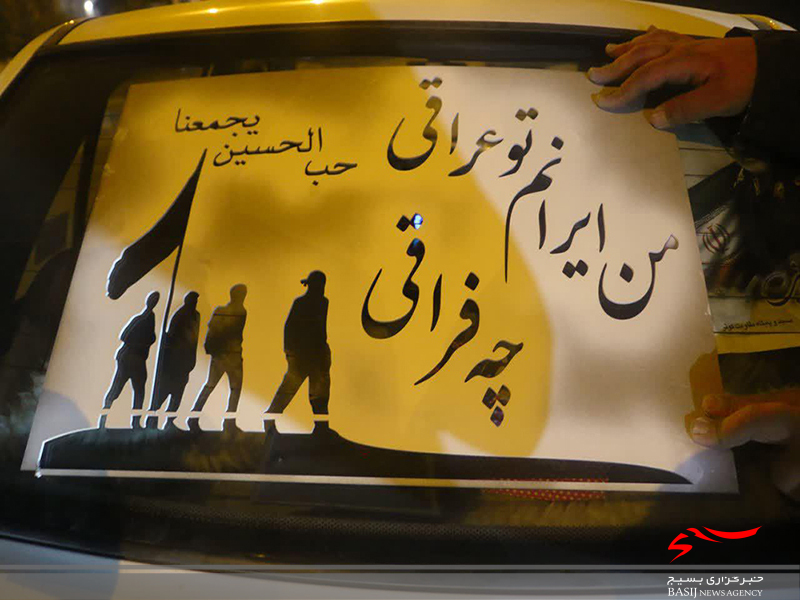 من ایرانم تو عراقی
چه فراقی
حب الحسین یجمعنا
خبرگزاری بسیج
BASIJ NEWS AGENCY